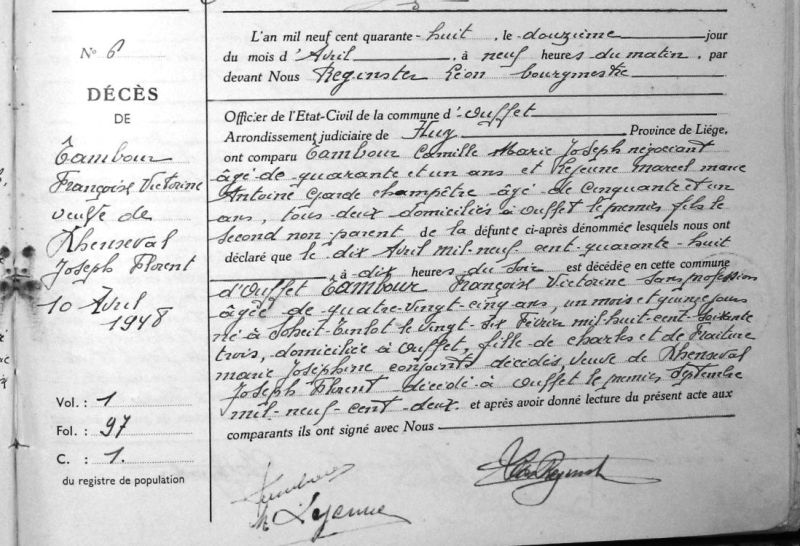 N° 6
DÉCÈS
DE
Tambour
Françoise Victorine
veuve de
Rhenseval
Joseph Florent
10 Avril
1948
Vol. : 1
Fol. : 97
C. : 1.
du registre de population
L'an mil neuf cent quarante-huit, le douzième jour
du mois d'Avril, à neuf heures du matin, par
devant Nous Reginster Léon bourgmestre
Officier de l'Etat-Civil de la commune d'Ouffet
Arrondissement judiciaire de Huy Province de Liége,
ont comparu Tambour Camille Marie Joseph négociant
âgé de quarante et un ans et Lejeune Marcel Marie
Antoine Garde champêtre âgé de cinquante et un
ans, tous deux domiciliés à Ouffet le premier fils le
second non parent de la défunte ci-après dénommée lesquels nous ont
déclaré que le dix Avril mil-neuf-cent-quarante-huit
à dix heures du soir est décédée en cette commune
d'Ouffet Tambour Françoise Victorine sans profession
âgée de quatre-vingt-cinq ans, un mois et quinze jours
né à Soheit-Tinlot le vingt-six Février mil huit-cent-soixante
trois, domiciliée à Ouffet, fille de Charles et de Fraiture
Marie Joséphine conjoints décédés, veuve de Rhenseval
Joseph Florent décédé à Ouffet le premier septembre
mil-neuf-cent-deux. et après avoir donné lecture du présent acte aux
comparants ils ont signé avec Nous
Tambour
M Lejeune